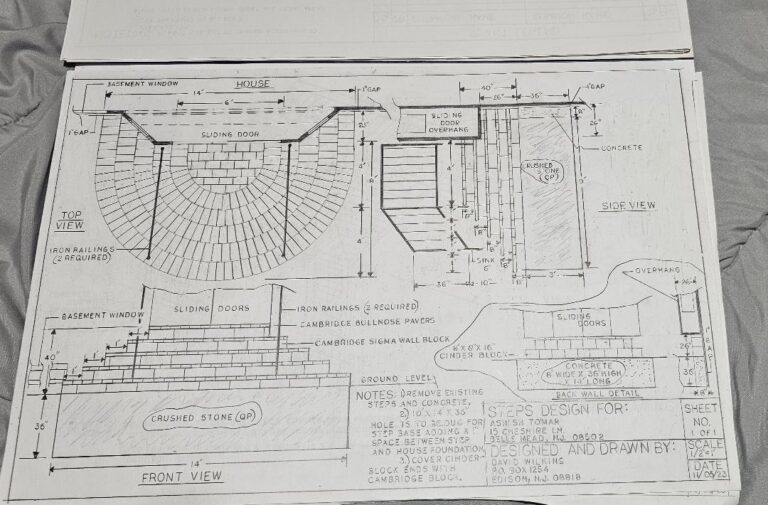 BASEMENT WINDOW
HOUSE
14'
6'
1"GAP
SLIDING DOOR
TOP
VIEW
IRON RAILINGS
(2 REQUIRED)
4'
4'
SLIDING
DOOR
OVERHANG
40"
26"
36"
1"GAP
8"
26"
CONCRETE
CRUSHED
STONE
(QP)
SIDE VIEW
4'
8"
8"
8"
SINK
6"
36"
10"
3'
BASEMENT WINDOW
SLIDING DOORS
IRON RAILINGS (2 REQUIRED)
CAMBRIDGE BULLNOSE PAVERS
CAMBRIDGE SIGMA WALL BLOCK
40"
1'
1'
1'
GROUND LEVEL
36"
CRUSHED STONE (QP)
14'
FRONT VIEW
OVERHANG
26"
SLIDING
DOORS
8"X 8"X 16"
CINDER BLOCK
CONCRETE
8" WIDE X 36" HIGH
14' LONG
BACK WALL DETAIL
1"GAP
26"
36"
8"
NOTES: 1) REMOVE EXISTING
STEPS AND CONCRETE.
2) 10' X 14' X 36"
HOLE IS TO BE DUG FOR
STEP BASE ADDING A 1"
SPACE BETWEEN STEP
AND HOUSE FOUNDATION.
3.) COVER CINDER
BLOCK ENDS WITH
CAMBRIDGE BLOCK.
STEPS DESIGN FOR:
ASHISH TOMAR
15 CHESHIRE LN.
BELLE MEAD, N.J. 08502
DESIGNED AND DRAWN BY:
DAVID WILKINS
P.O. BOX 1254
EDISON, N.J. 08818
SHEET
NO.
1 OF 1
SCALE
1/2"=1'
DATE
11/05/23